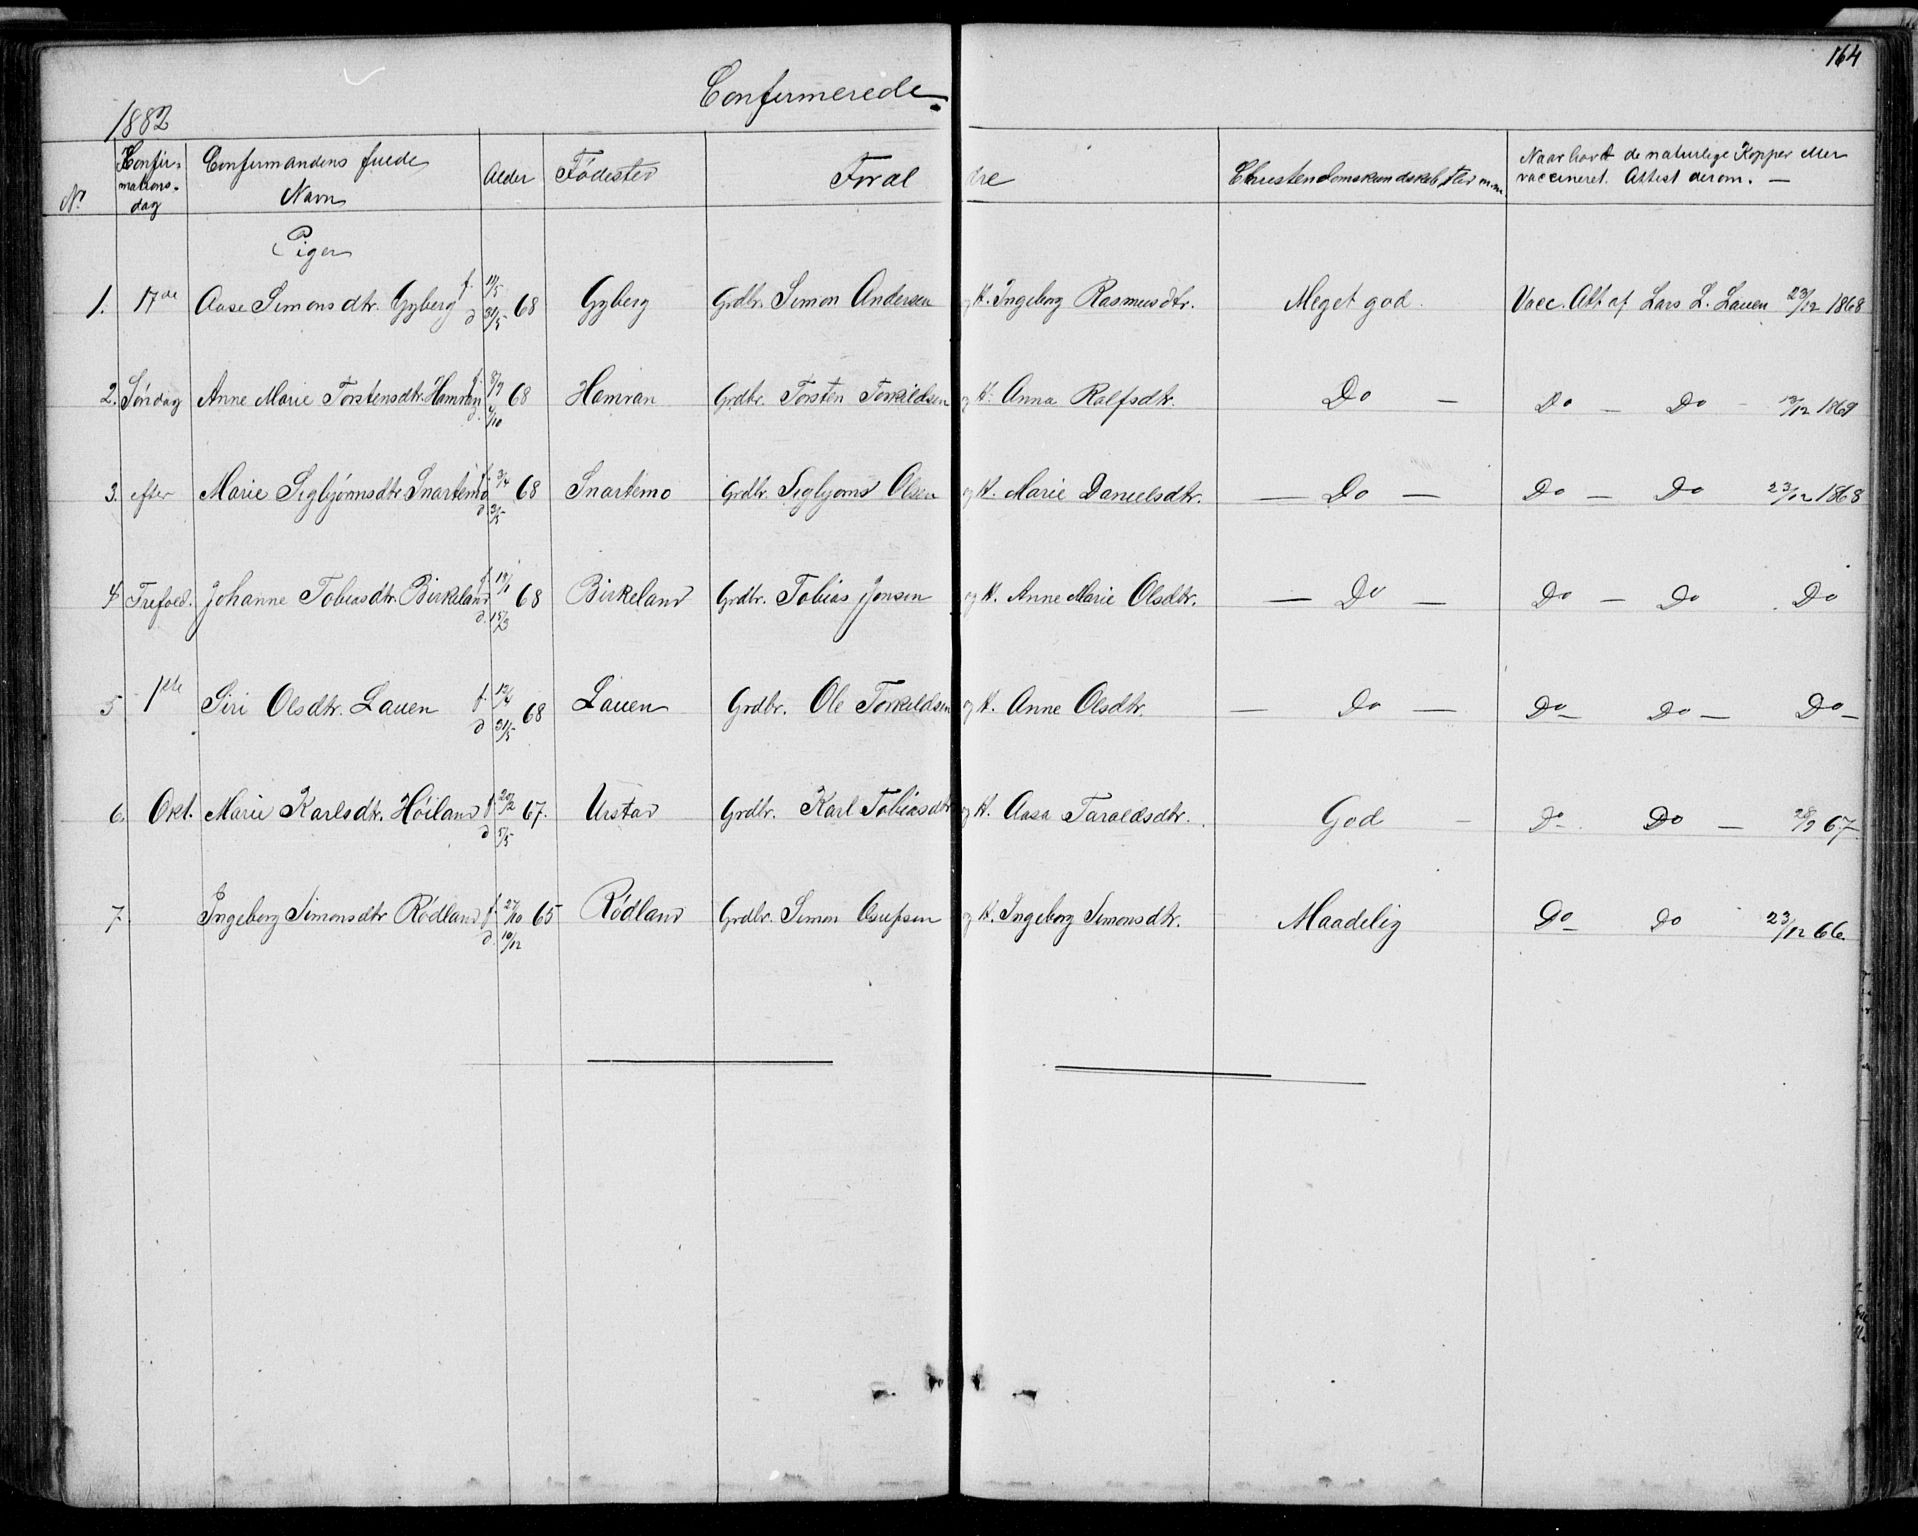 164
Confirmerede.
1882
No. Confirmationsdag Confirmandens fulde Navn Alder Fødested Foræl dre Christendomskundskab, Flid m.m. Naar havt de naturlige Kopper eller vaccineret. Attest derom. —
Piger
1. 17de Aase Simonsdtr. Gyberg f. d. 31/5 68 Gyberg Grdbr. Simon Andersen og K. Ingeborg Rasmusdtr. Meget god. Vacc. Att af Lars L. Lauen 23/12 1868
2. Søndag Anne Marie Torstensdtr. Hamran f. 8/9 d. 4/10 68 Hamran Grdbr. Torsten Torkildsen og K. Anna Ralfsdtr. Do — Do — Do — 1869
3. efter Marie Sigbjørnsdtr. Snartemo f. 3/4 d. 3/5 68 Snartemo Grdbr. Sigbjørns Olsen og K. Marie Danielsdtr. — Do — Do — Do 23/12 1868
4 Trefold. Johanne Tobiasdtr. Birkeland f. d. 15/3 68 Birkeland Grdbr. Tobias Jonsen og K. Anne Marie Olsdtr. — Do — Do — Do Do
5 1ste Siri Olsdtr. Lauen f. d. 31/5 68 Lauen Grdbr. Ole Torkildsen og K. Anne Olsdtr. — Do — Do — Do — Do —
6. Okt. Marie Karlsdtr. Høiland f. 20/2 d. 5/5 67. Urstad Grdbr. Karl Tobiasdtr og K. Aasa Taraldsdtr. God — Do Do — 28/9 67
7. Ingeborg Simonsdtr Rødland f. 27/10 d. 10/12 65 Rødland Grdbr. Simon Osufsen og K. Ingeborg Simonsdtr. Maadelig Do Do 23/12 66.